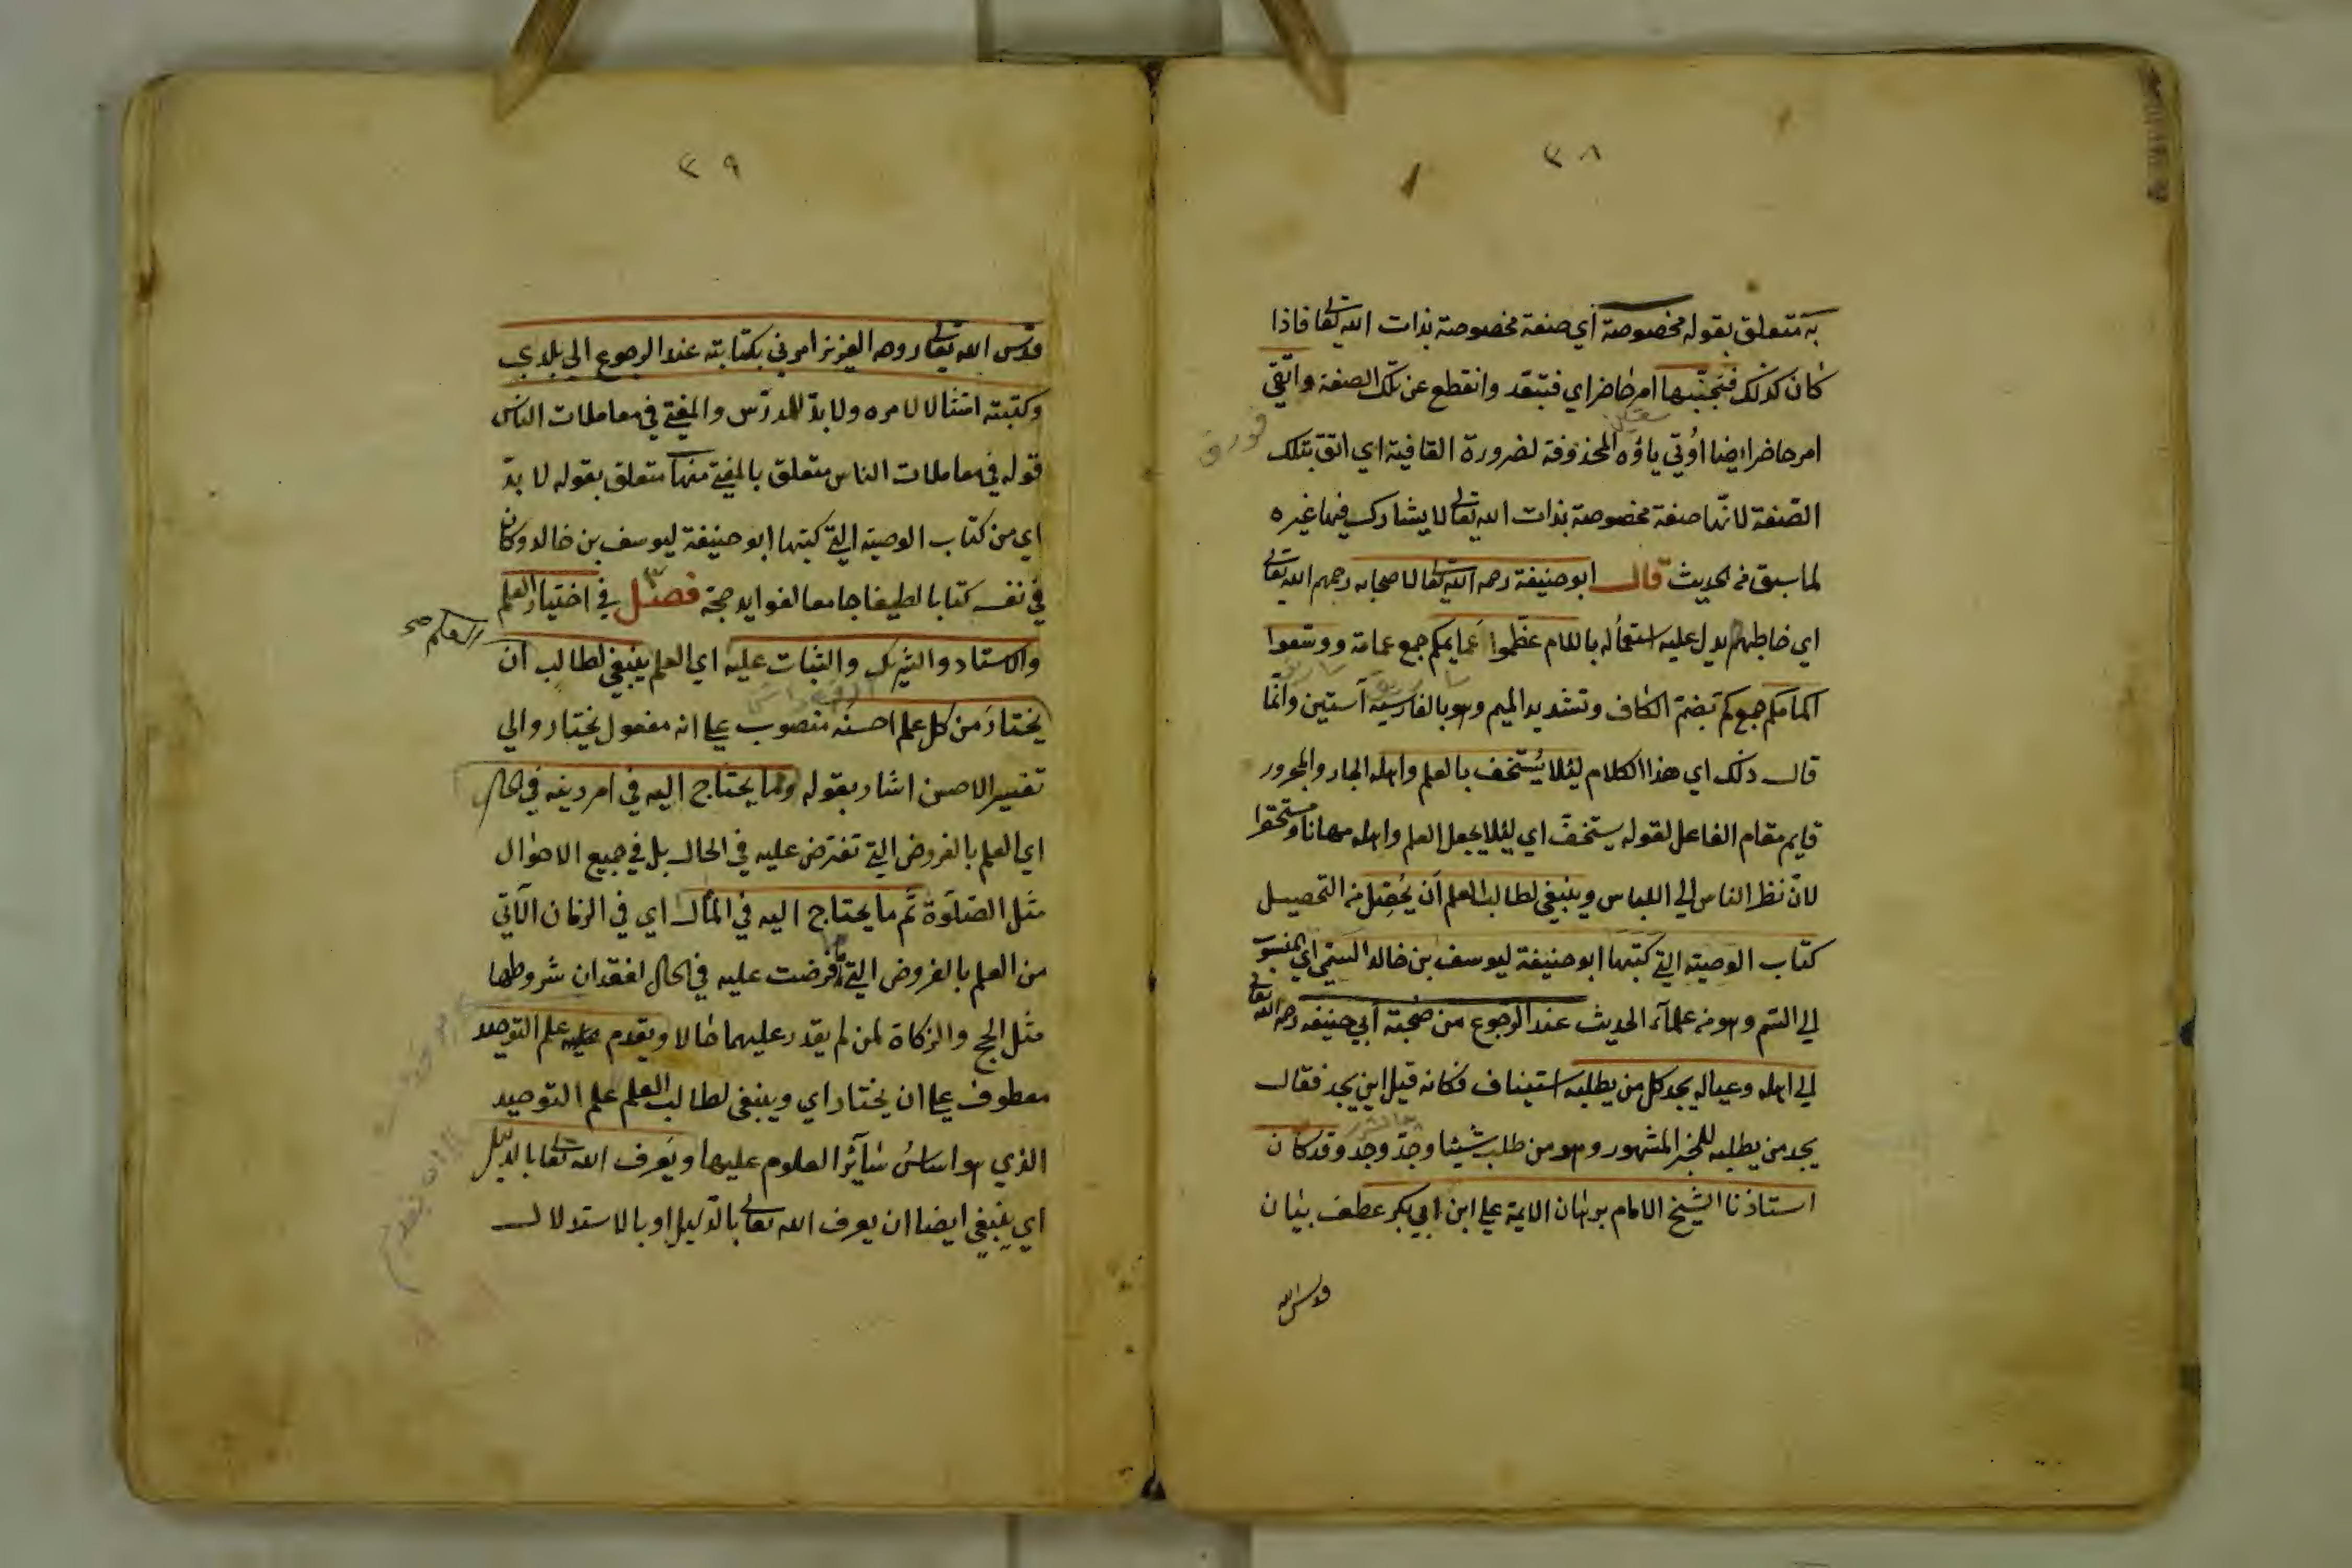 ٣٨
به متعلق بقوله مخصوصة أي صنفة مخصوصة بذات الله تعا فاذا
كان كذلك فتجنبها امر حاضر اي فتبعّد وانقطع عن تلك الصفة واتّقي
امر حاضر ايضا اوُتي ياؤه المحذوفة لضرورة القافية اي اتق بتلك
الصّفة لانّها صفة مخصوصة بذات الله تعالى لا يشارك فيها غيره
لما سبق فى الحديث قال ابو حنيفة رحمه الله تعا لاصحابه رحمهم الله تعالى
اي خاطبهم يدل عليه استعماله باللام عظّموا عمايمكم جمع عمامة ووسّعوا
اكمامكم جمع كم بضمّ الكاف وتشديد الميم وهو بالفارسية آستين وانّما
قال ذلك اي هذا الكلام ليُلا يُستخف بالعلم واهله الجار والمجرور
قايم مقام الفاعل لقوله يستخفّ اي ليُلا يجعل العلم واهله مهانا ومستحقرا
لانّ نظر الناس الي اللباس وينبغي لطالب العلم أن يُحصّل من التحصيل
كتاب الوصية التي كتبها ابو حنيفة ليوسف بن خالد السمتي اي المنسوب
الي السّم وهو من علماء الحديث عند الرجوع من صُحبة أبي حنيفه رحمه الله تعالى
الي اهله وعياله يجد كل من يطلبه استيناف فكانه قيل اين يجد فقال
يجد من يطلبه للخبر المشهور وهو من طلب شيئا وجدّ وجد وقد كان
استاذنا الشيخ الامام برهان الايمة علي ابن ابي بكر عطف بيان
قدس الله
٣٩
قدّس الله تعالى روحه العزيز امرني بكتابته عند الرجوع الي بلدي
وكتبته امتثالا لامره ولا بدّ للمدرّس والمفتي في معاملات الناس
قوله في معاملات الناس متعلق بالمفتي منها متعلق بقوله لا بدّ
اي من كتاب الوصية التي كتبها ابو حنيفة ليوسف بن خالد وكان
في نفسه كتابا لطيفا جامعا لفوايد جمّة فصل في اختيار العلم
والاستاد والشريك والثبات عليه اي العلم ينبغي لطالب العلم صح ان
يختارَ من كل علم احسنَه منصوب علي انه مفعول يختار والي
تفسير الاحسن اشار بقوله وما يحتاج اليه في امر دينه في الحال
اي العلم بالفروض التي تفترض عليه في الحال بل في جميع الاحوال
مثل الصّلوٰة ثمّ ما يحتاج اليه في المآل اي في الزمان الآتي
من العلم بالفروض التي ما فرضت عليه في الحال لفقدان شروطها
مثل الحج والزكاة لمن لم يقدر عليهما حالا ويقدم علم التوحيد
معطوف علي ان يختار اي وينبغي لطالب العلم علم التوحيد
الذي هو اساسُ سَآئر العلوم عليها ويَعرف الله تعا بالدليل
اي ينبغي ايضا ان يعرف الله تعالى بالدّليل او بالاستدلال